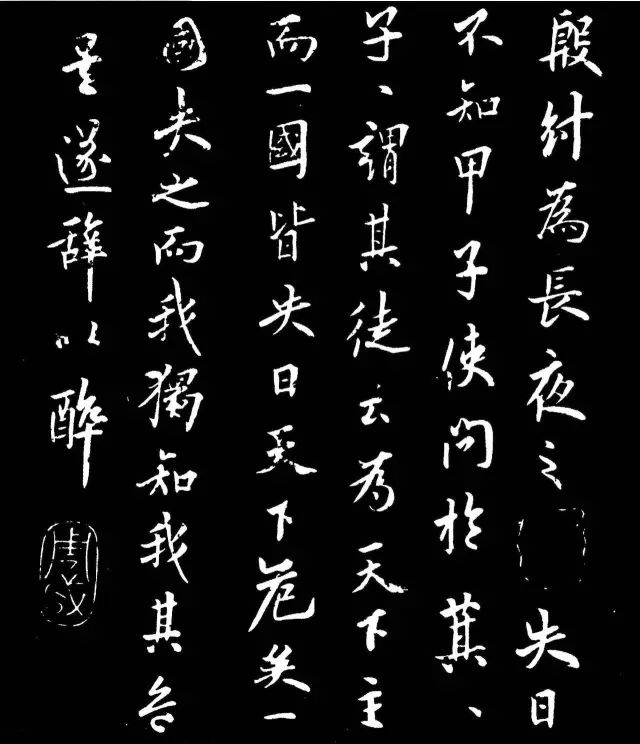 殷紂為長夜之失日
不知甲子使問於箕、
子、謂其徒云為天下主
而一國皆失日天下危矣一
國失之而我獨知我其危
矣遂辭以醉